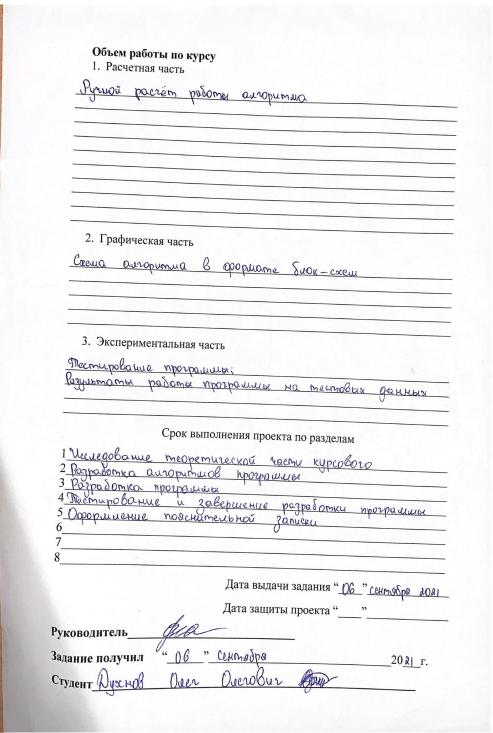 Объем работы по курсу
1. Расчетная часть
Ручной расчёт работы алгоритма
2. Графическая часть
Схема алгоритма в формате блок-схем
3. Экспериментальная часть
Тестирование программы;
Результаты работы программы на тестовых данных
Срок выполнения проекта по разделам
1 Исследование теоретической части курсового
2 Разработка алгоритмов программы
3 Разработка программы
4 Тестирование и завершение разработки программы
5 Оформление пояснительной записки
6
7
8
Дата выдачи задания “06” сентября 2021
Дата защиты проекта “___”
Руководитель
Задание получил “06” сентября 2021 г.
Студент Духнов Олег Олегович